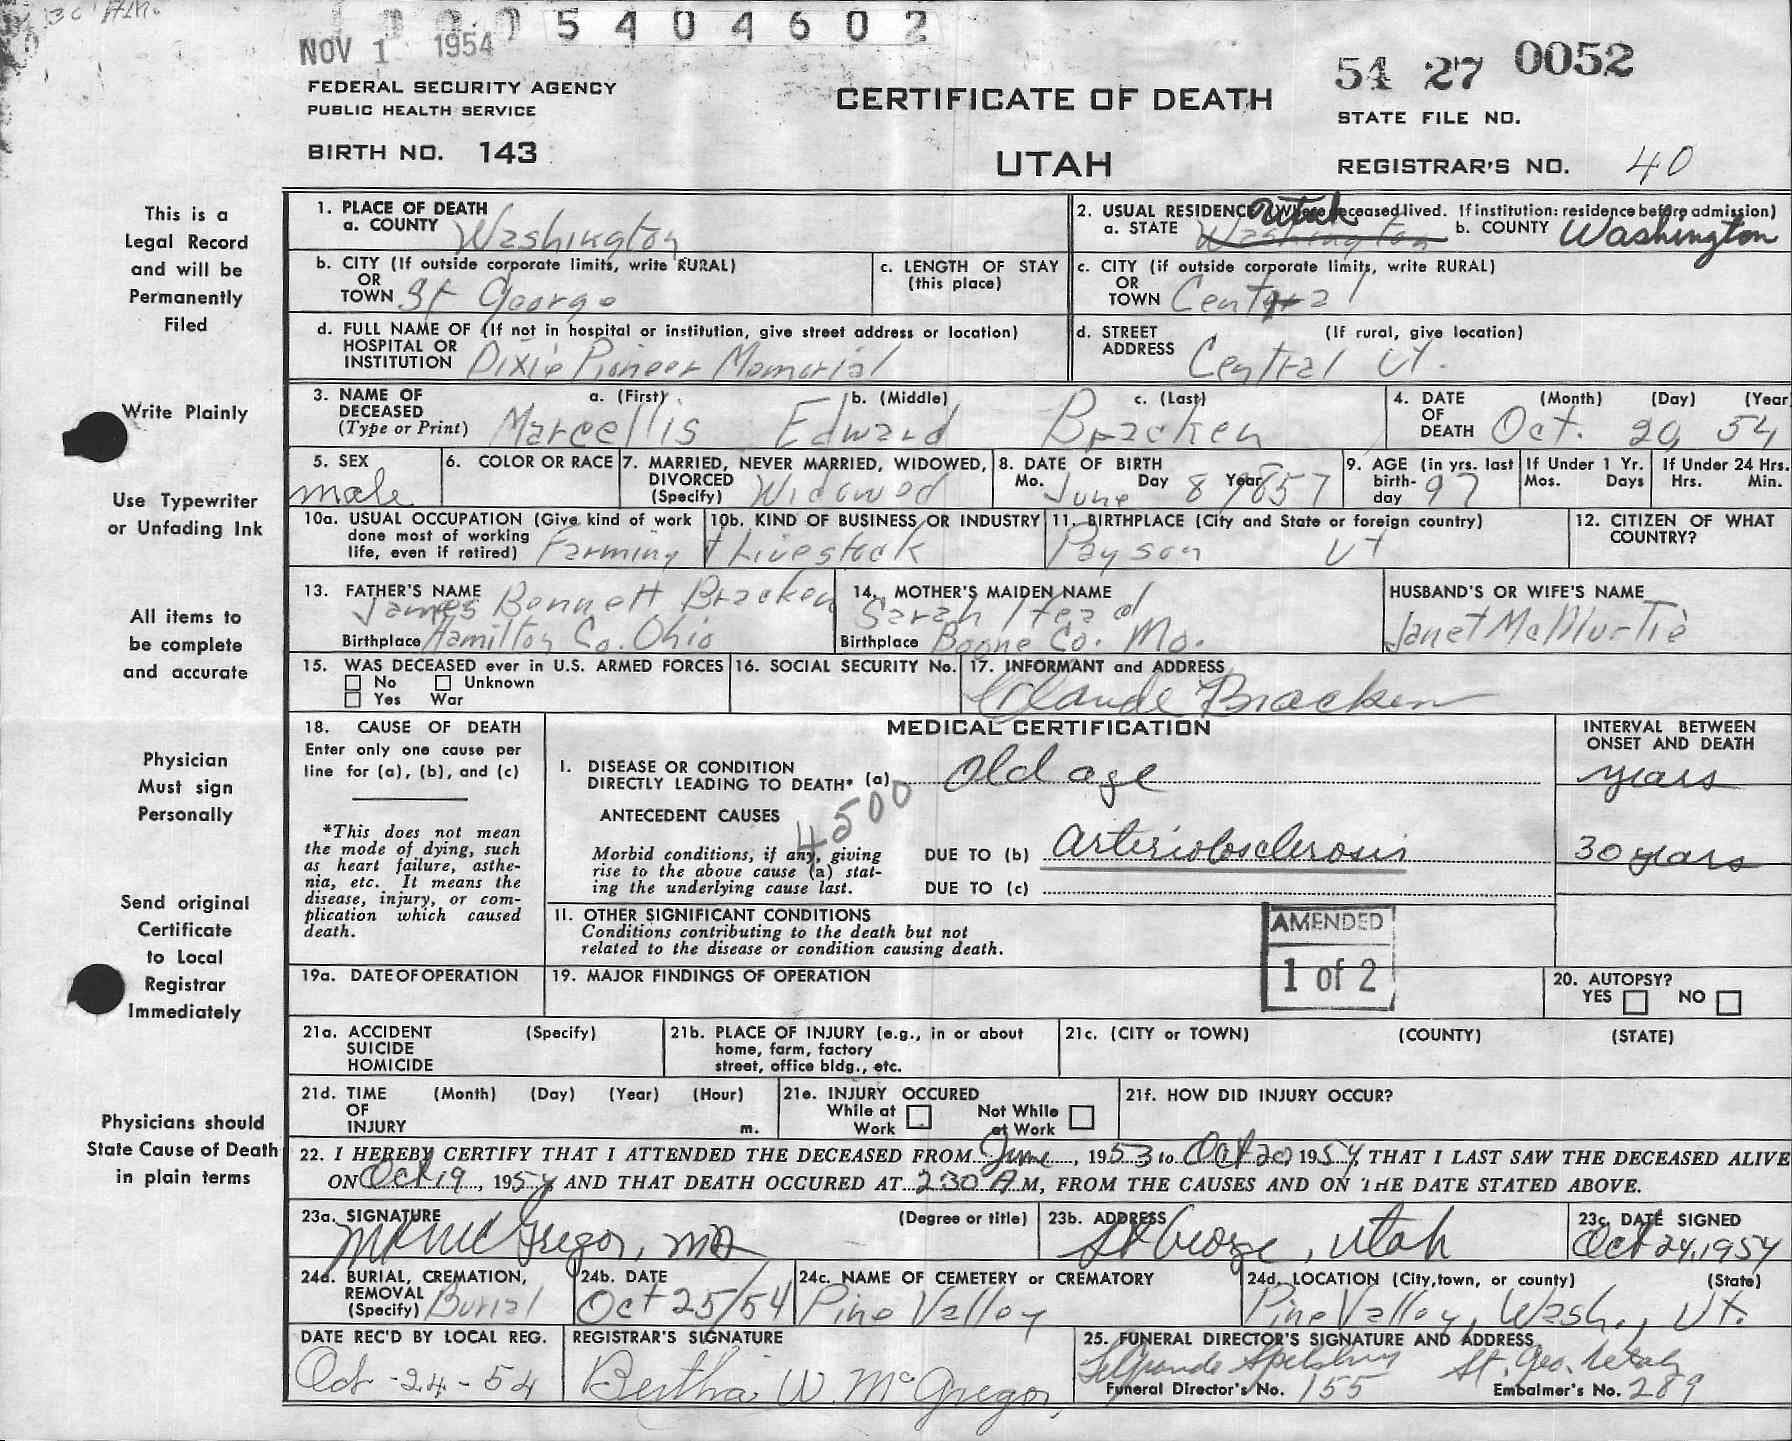 NOV 1 1954
5 4 0 4 6 0 2
FEDERAL SECURITY AGENCY
PUBLIC HEALTH SERVICE
BIRTH NO. 143
CERTIFICATE OF DEATH
UTAH
54 27 0052
STATE FILE NO.
REGISTRAR'S NO. 40
This is a
Legal Record
and will be
Permanently
Filed
Write Plainly
Use Typewriter
or Unfading Ink
All items to
be complete
and accurate
Physician
Must sign
Personally
Send original
Certificate
to Local
Registrar
Immediately
Physicians should
State Cause of Death
in plain terms
1. PLACE OF DEATH
a. COUNTY Washington
2. USUAL RESIDENCE (Where deceased lived. If institution: residence before admission)
a. STATE Washington Utah b. COUNTY Washington
b. CITY (If outside corporate limits, write RURAL)
OR
TOWN St George
c. LENGTH OF STAY
(this place)
c. CITY (if outside corporate limits, write RURAL)
OR
TOWN Central
d. FULL NAME OF (If not in hospital or institution, give street address or location)
HOSPITAL OR
INSTITUTION Dixie Pioneer Memorial
d. STREET (If rural, give location)
ADDRESS Central Ut.
3. NAME OF a. (First) b. (Middle) c. (Last)
DECEASED
(Type or Print) Marcellis Edward Bracken
4. DATE (Month) (Day) (Year
OF
DEATH Oct. 20, 54
5. SEX
male
6. COLOR OR RACE
7. MARRIED, NEVER MARRIED, WIDOWED,
DIVORCED
(Specify) Widowed
8. DATE OF BIRTH
Mo. Day Year
June 8 1857
9. AGE (in yrs. last
birth-
day 97
If Under 1 Yr.
Mos. Days
If Under 24 Hrs.
Hrs. Min.
10a. USUAL OCCUPATION (Give kind of work
done most of working
life, even if retired) Farming
10b. KIND OF BUSINESS OR INDUSTRY
+ Livestock
11. BIRTHPLACE (City and State or foreign country)
Payson Ut
12. CITIZEN OF WHAT
COUNTRY?
13. FATHER'S NAME
James Bennett Bracken
Birthplace Hamilton Co. Ohio
14. MOTHER'S MAIDEN NAME
Sarah Head
Birthplace Boone Co. Mo.
HUSBAND'S OR WIFE'S NAME
Janet McMurtie
15. WAS DECEASED ever in U.S. ARMED FORCES
No Unknown
Yes War
16. SOCIAL SECURITY No.
17. INFORMANT and ADDRESS
Claude Bracken
18. CAUSE OF DEATH
Enter only one cause per
line for (a), (b), and (c)
*This does not mean
the mode of dying, such
as heart failure, asthe-
nia, etc. It means the
disease, injury, or com-
plication which caused
death.
MEDICAL CERTIFICATION
I. DISEASE OR CONDITION
DIRECTLY LEADING TO DEATH* (a) Old age
ANTECEDENT CAUSES
4500
Morbid conditions, if any, giving
rise to the above cause (a) stat-
ing the underlying cause last.
DUE TO (b) arteriolosclerosis
DUE TO (c)
INTERVAL BETWEEN
ONSET AND DEATH
years
30 years
II. OTHER SIGNIFICANT CONDITIONS
Conditions contributing to the death but not
related to the disease or condition causing death.
AMENDED
1 of 2
19a. DATE OF OPERATION
19. MAJOR FINDINGS OF OPERATION
20. AUTOPSY?
YES NO
21a. ACCIDENT (Specify)
SUICIDE
HOMICIDE
21b. PLACE OF INJURY (e.g., in or about
home, farm, factory
street, office bldg., etc.
21c. (CITY or TOWN) (COUNTY) (STATE)
21d. TIME (Month) (Day) (Year) (Hour)
OF
INJURY m.
21e. INJURY OCCURED
While at Work Not While at Work
21f. HOW DID INJURY OCCUR?
22. I HEREBY CERTIFY THAT I ATTENDED THE DECEASED FROM June, 1953 to Oct 20, 1954, THAT I LAST SAW THE DECEASED ALIVE
ON Oct 19, 1954 AND THAT DEATH OCCURED AT 230 A M, FROM THE CAUSES AND ON THE DATE STATED ABOVE.
23a. SIGNATURE (Degree or title)
McGregor, MD
23b. ADDRESS
St George, Utah
23c. DATE SIGNED
Oct 24, 1954
24a. BURIAL, CREMATION,
REMOVAL
(Specify) Burial
24b. DATE
Oct 25/54
24c. NAME OF CEMETERY or CREMATORY
Pine Valley
24d. LOCATION (City, town, or county) (State)
Pine Valley, Wash., Ut.
DATE REC'D BY LOCAL REG.
Oct-24-54
REGISTRAR'S SIGNATURE
Bertha W. McGregor
25. FUNERAL DIRECTOR'S SIGNATURE AND ADDRESS
St. Geo. Utah
Funeral Director's No. 155 Embalmer's No. 289